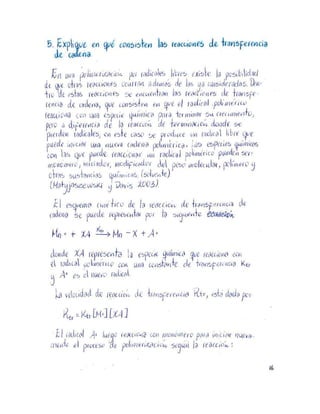 5. Explique en qué consisten las reacciones de transferencia
de cadena.
En una polimerización por radicales libres existe la posibilidad
de que otras reacciones ocurran además de las ya consideradas. Den-
tro de estas reacciones se encuentran las reacciones de transfe-
rencia de cadena, que consisten en que el radical polimérico
reacciona con una especie química para terminar su crecimiento,
pero a diferencia de la reacción de terminación donde se
pierden radicales, en este caso se produce un radical libre que
puede iniciar una nueva cadena polimérica. Las especies químicas
con las que puede reaccionar un radical polimérico pueden ser:
monómero, iniciador, modificador del peso molecular, polímero y
otras sustancias químicas (solvente)
(Matyjaszewski y Davis 2003).
El esquema cinético de la reacción de transferencia de
cadena se puede representar por la siguiente ecuación
Mn• + XA Ktr→ Mn - X + A•
donde XA representa la especie química que reacciona con
el radical polimérico con una constante de transferencia Ktr
y A• es el nuevo radical.
La velocidad de reacción de transferencia Rtr, está dada por
Rtr = Ktr [M•][XA]
El radical A• luego reacciona con monómero para iniciar nueva-
mente el proceso de polimerización según la reacción: